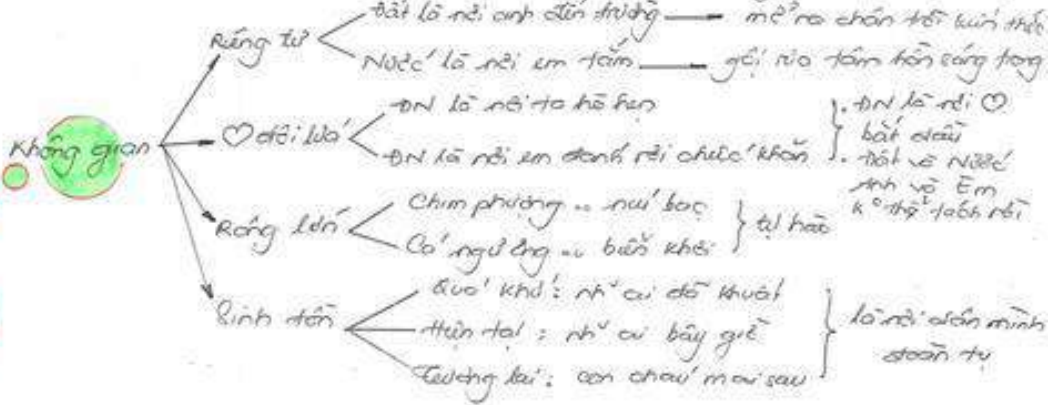 Không gian
Riêng tư
Đất là nơi anh đến trường
mở ra chân trời kiến thức
Nước là nơi em tắm
gội rửa tâm hồn sáng trong
♡ đôi lứa
ĐN là nơi ta hò hẹn
ĐN là nơi em đánh rơi chiếc khăn
. ĐN là nơi ♡
bắt đầu
. Đất và Nước
Anh và Em
k° thể tách rời
Rộng lớn
Chim phượng .. núi bạc
Cá ngư ông .. biển khơi
tự hào
Sinh tồn
Quá khứ: nh~ ai đã khuất
Hiện tại: nh~ ai bây giờ
Tương lai: con cháu mai sau
là nơi dân mình
đoàn tụ